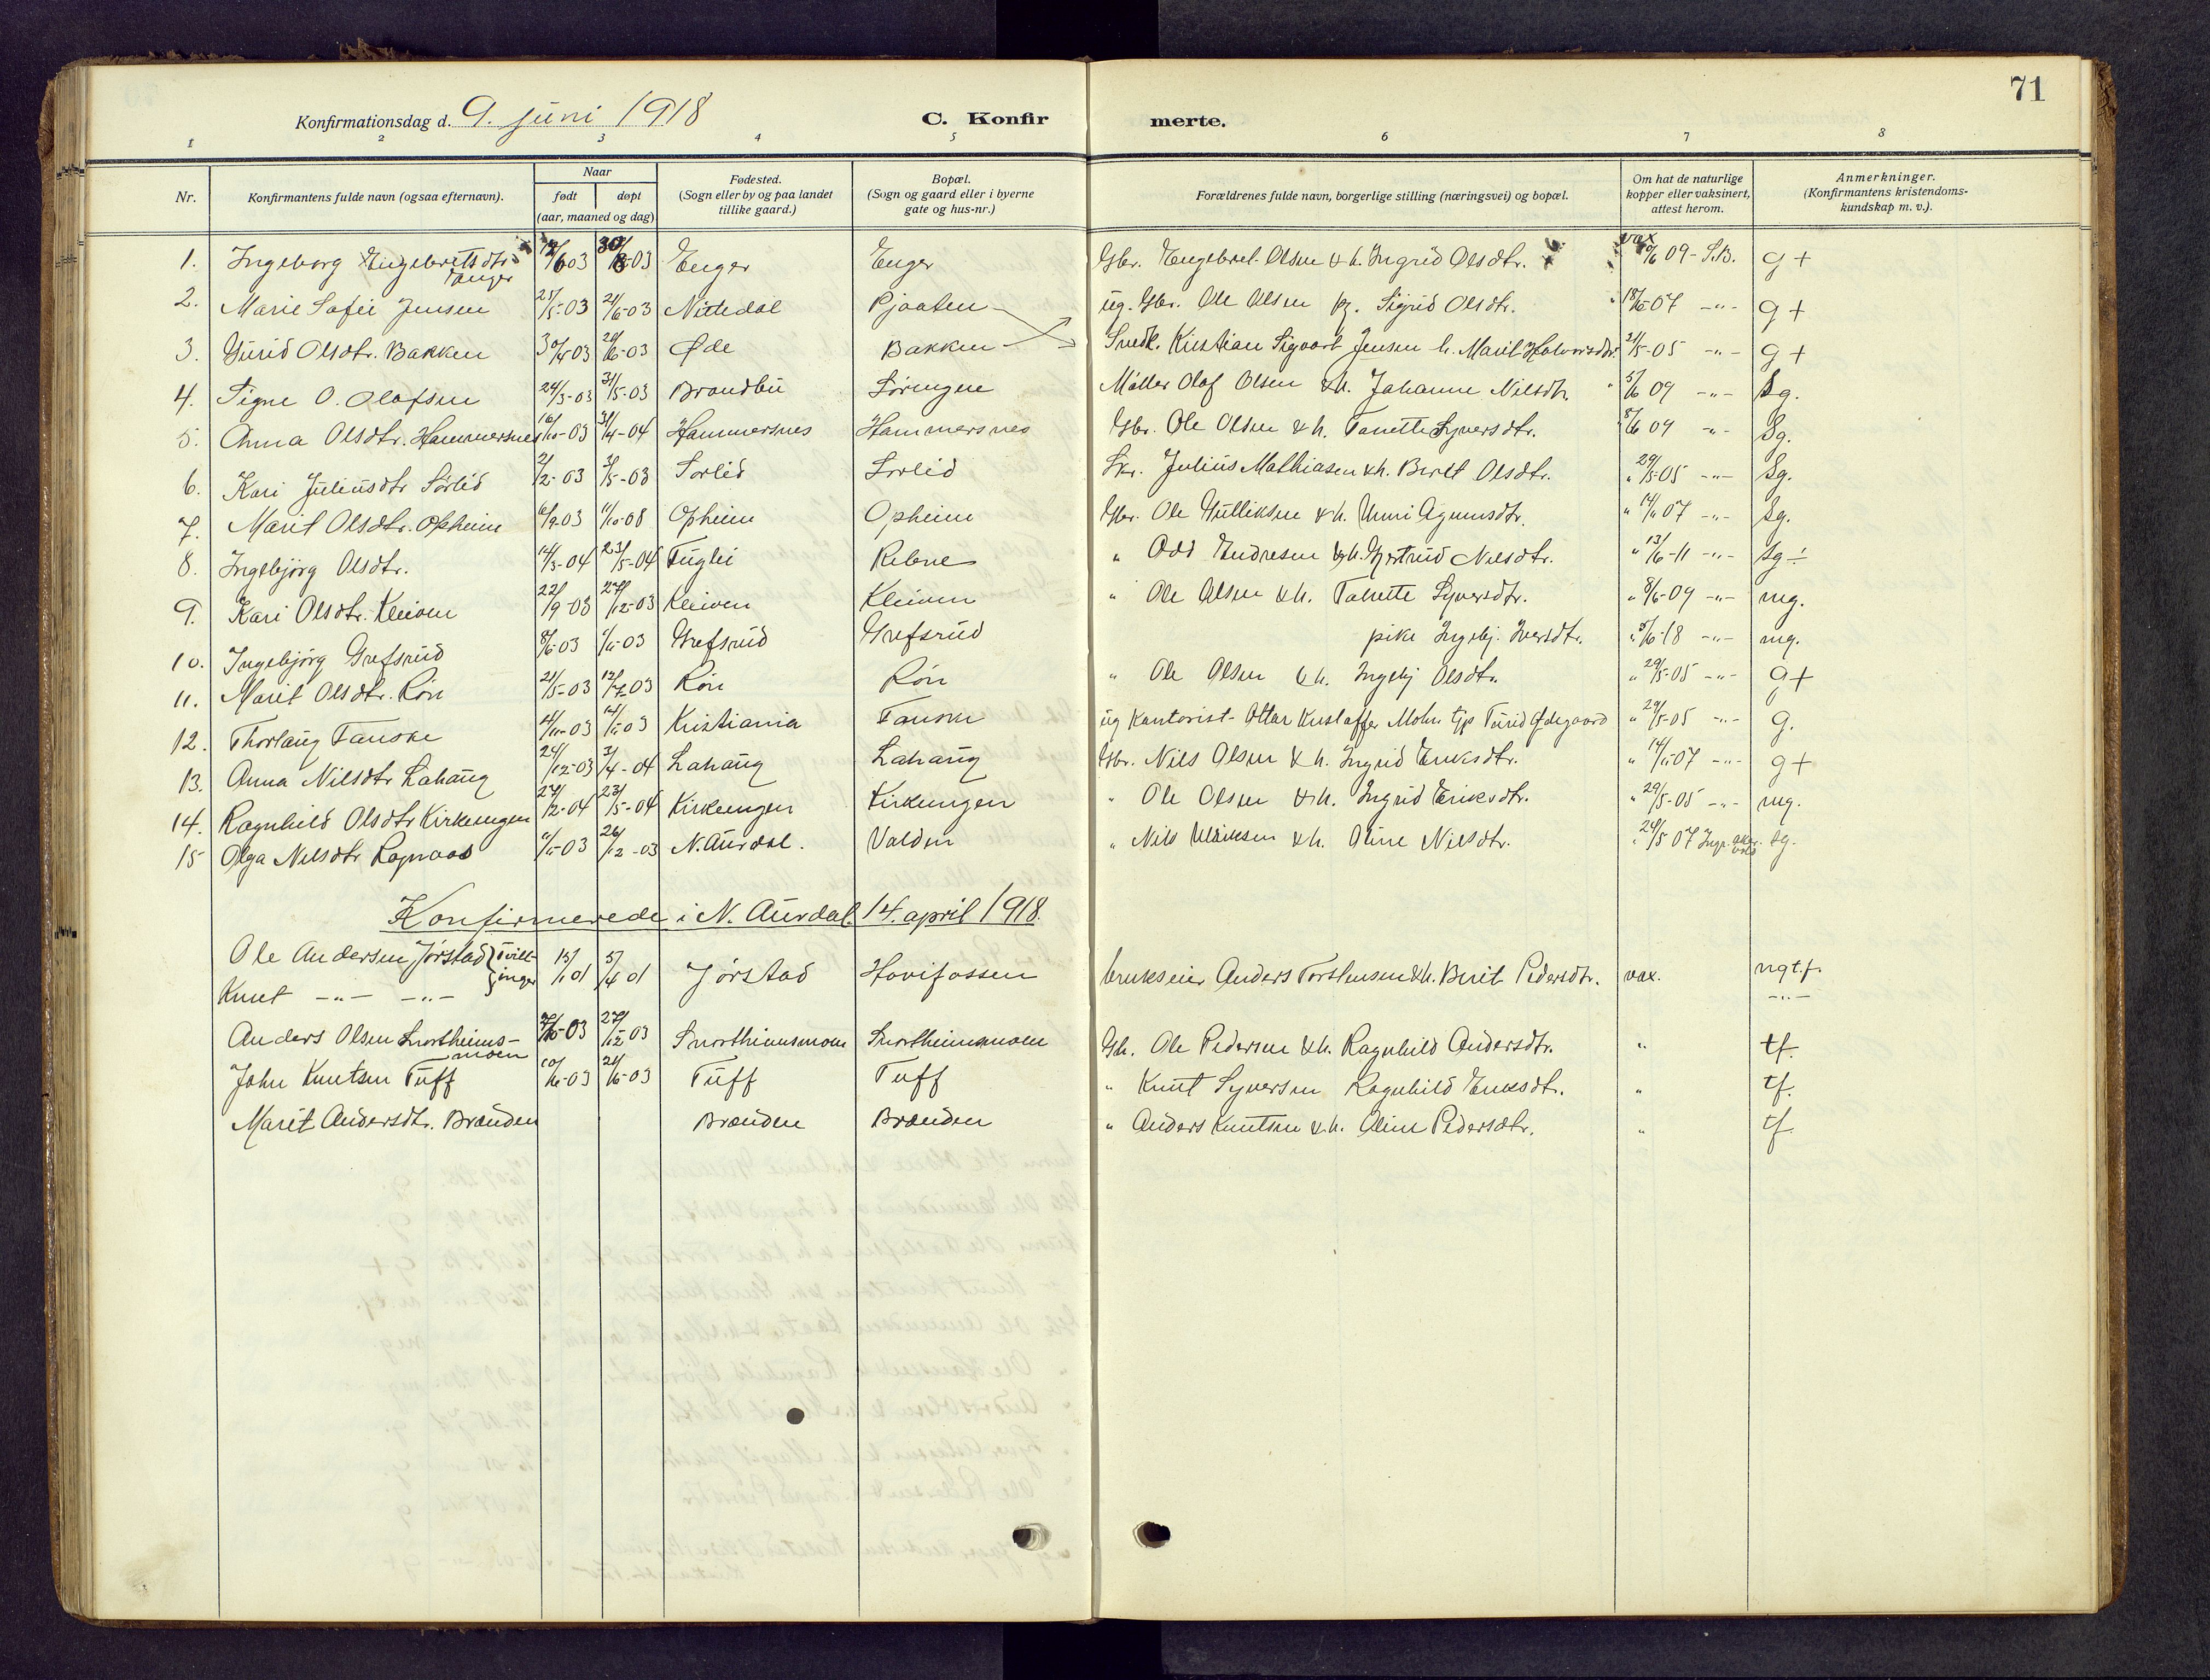 71
Konfirmationsdag d. 9. juni 1918 C. Konfir merte.
1 2 3 4 5 6 7 8
Nr. Konfirmantens fulde navn (ogsaa efternavn). Naar født døpt (aar, maaned og dag) Fødested. (Sogn eller by og paa landet tillike gaard.) Bopæl. (Sogn og gaard eller i byerne gate og hus-nr.) Forældrenes fulde navn, borgerlige stilling (næringsvei) og bopæl. Om hat de naturlige kopper eller vaksinert, attest herom. Anmerkninger. (Konfirmantens kristendoms-kundskap m. v.).
1. Ingeborg Engebretsdtr. Enger Enger Enger Gbr. Engebret Olsen & h. Ingrid Olsdtr. vax 09 - S.B. g +
2. Marie Sofie Jensen 25/5-03 21/6-03 Nittedal Pjaaten ug. Gbr. Ole Olsen Sigrid Olsdtr. 07 -"- g +
3. Guri Olsdtr. Bakken Øde Bakken Snedk. Kristian Sigvart Jensen h. Marit Halvorsdtr. 21/5-05 -"- g +
4. Signe O. Olafsen 24/3-03 31/5-03 Brandbu Sørengen Møller Olaf Olsen & h. Johanne Nilsdtr. 09 -"- sg.
5. Anna Olsdtr. Hammersnes 16/10-03 31/4-04 Hammersnes Hammersnes Gbr. Ole Olsen & h. Tanette Syversdtr. 8/6 09 -"- sg.
6. Kari Juliusdtr Sørlid 2/2-03 3/5-03 Sørlid Sørlid Julius Mathiasen & h. Berit Olsdtr. " 29/5-05 -"- sg.
7. Marit Olsdtr. Opheim Opheim Opheim Gbr. Ole Gulliksen & h. Unni " 07 -"- sg.
8. Ingebjørg Olsdtr. 14/3-04 23/5-04 Fuglei " Odd Endresen & h. Gjertrud Nilsdtr. " 13/6-11 -"- sg ÷
9. Kari Olsdtr. Kleiven 22/9-03 27/12-03 Kleiven Kleiven " Ole Olsen & h. Tanette Syversdtr. " 8/6-09 -"- mg.
10. Ingebjørg Grefsrud 8/6-03 Grefsrud Grefsrud pike Ingebj. Iversdtr. -18 -"- mg.
11. Marit Olsdtr. Røn 21/5-03 12/7-03 Røn Røn " Ole Olsen & h. Ingebj Olsdtr. " 29/5-05 -"- g +
12. Thorlaug Fauske Kristiania Fauske ug Kontorist Ottar Kristoffer Mohn Turid Ødegaard " 29/5-05 -"- g.
13. Anna Nilsdtr Lahaug 24/12-03 3/4-04 Lahaug Lahaug Gbr. Nils Olsen & h. Ingrid Eriksdtr. " 07 -"- g +
14. Ragnhild Olsdtr Kirkeengen 27/2-04 23/5-04 Kirkeengen Kirkeengen " Ole Olsen & h. Ingrid Eriksdtr. " 29/5-05 -"- mg.
15 Olga Nilsdtr Rognaas 26/12-03 N. Aurdal. Volden " Nils Ulriksen & h. Oline Nilsdtr. " 24/5 07 sg.
Konfirmerede i N. Aurdal 14. april 1918.
Ole Andersen Jørstad } Tvill-
Knut -"- -"- } inger 15/1 01 5/4 01 Jørstad Hovifossen brukseier Anders Torstensen & h. Berit Pedersdtr. vax. ngt.f.
-"-
Anders Olsen Snortheims-
moen 27/12-03 Snortheimsmoen Snortheimsmoen Gb. Ole Pedersen & h. Ragnhild Andersdtr. " tf.
John Knutsen Tuff 21/6-03 Tuff Tuff " Knut Syversen Ragnhild Eriksdtr. " tf.
Marit Andersdtr. Brænden Brænden Brænden " Anders Knutsen & h. Oline Pedersdtr. " tf.